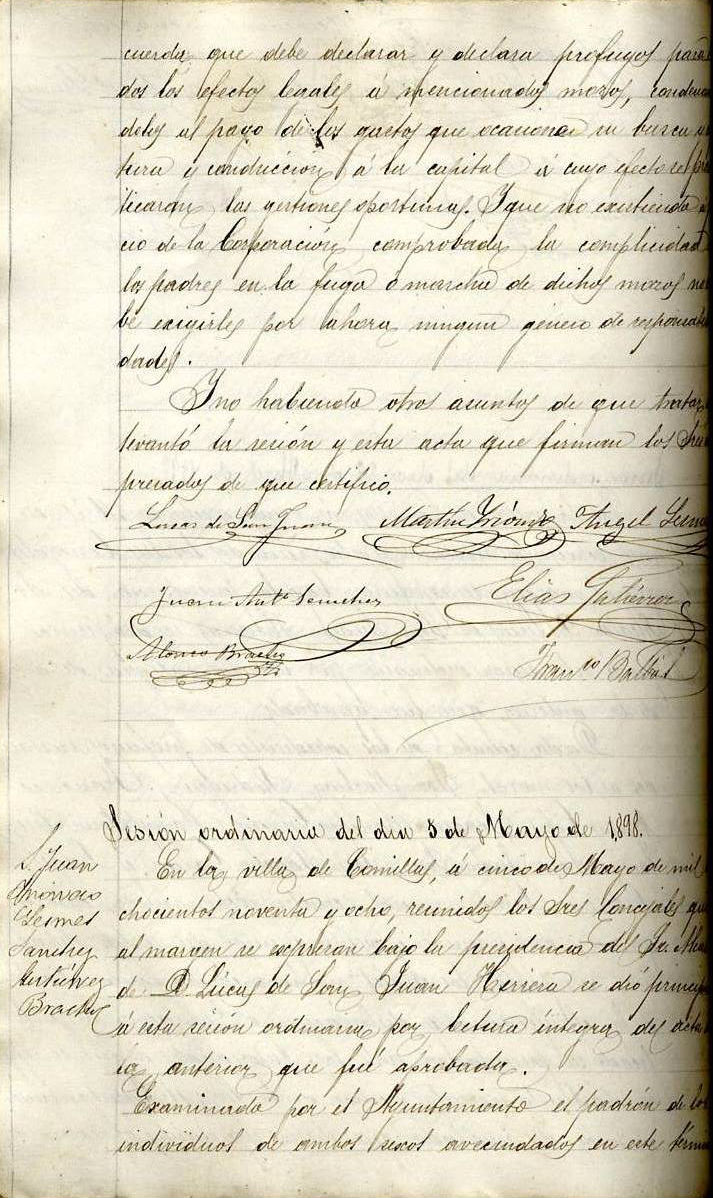 cuerda que debe declarar y declara profugos para
dos los efectos legales á mencionados mozos, condenan
dolos al pago de los gastos que ocasione su busca
tura y conducción á la capital á cuyo efecto se prac
ticarán las gestiones oportunas. Y que no existiendo
cio de la Corporación comprobada la complicidad
los padres en la fuga ó marcha de dichos mozos no
be exigirles por ahora ningun género de responsabili
dades.
Y no habiendo otros asuntos de que tratar
levantó la sesión y esta acta que firman los Sres
presados de que certifico.
Lucas de San Juan Angel
Juan Ant.º Sanchez Elias Gutiérrez
Alonso Brachez Fran.co
Sesión ordinaria del dia 5 de Mayo de 1898.
S. Juan
Lesmes
Sanchez
Gutiérrez
Brachez
En la villa de Comillas, á cinco de Mayo de mil
chocientos noventa y ocho, reunidos los Sres Concejales que
al margen se expresan bajo la presidencia del Sr. Alcal
de D. Lúcas de San Juan Herrera se dió principio
á esta sesión ordinaria por lectura íntegra del acta
la anterior que fué aprobada.
Examinado por el Ayuntamiento el padrón de los
individuos de ambos sexos avecindados en este término